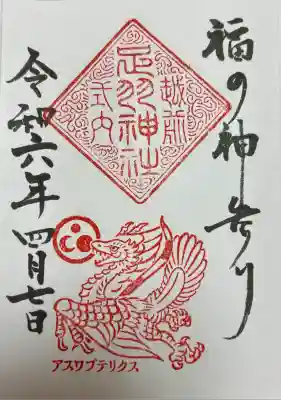 福の神
越前
足羽神社
式内
令和六年四月七日
アスワプテリクス